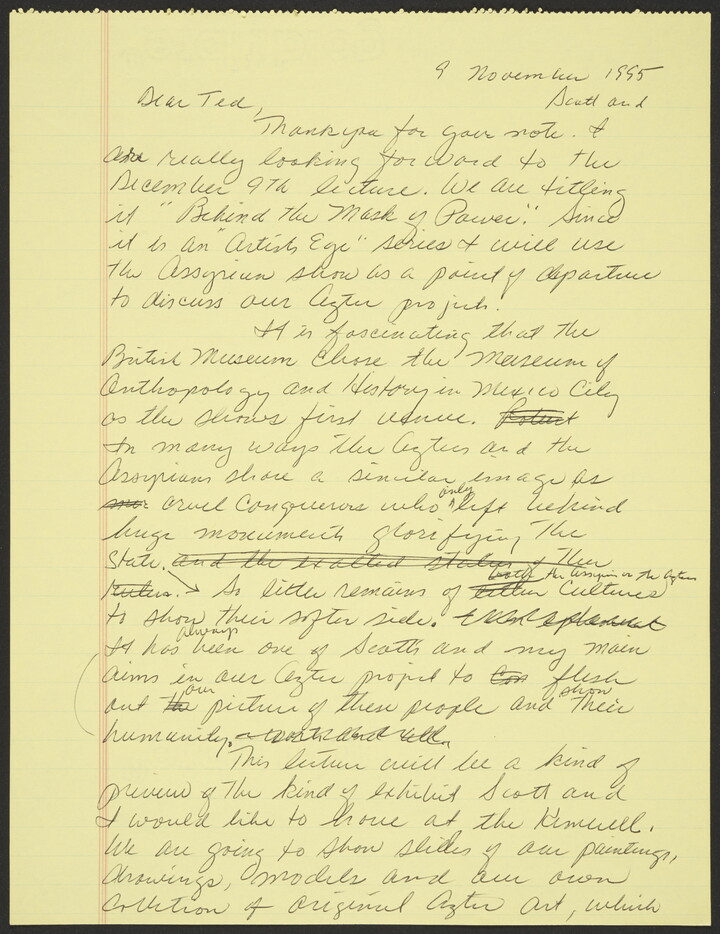 9 November 1995
Dear Ted, Scott and
Thank you for your note. I
am really looking forward to the
December 9th lecture. We are titling
it "Behind the Mask of Power." Since
it is an "Artists Eye" series I will use
the Assyrian show as a point of departure
to discuss our Aztec project.
It is fascinating that the
British Museum chose the Museum of
Anthropology and History in Mexico City
as the shows first venue.
In many ways the Aztecs and the
Assyrians share a similar image as
cruel conquerors who only left behind
huge monuments glorifying the
State. and the exalted status of their
Rulers. So little remains of both the Assyrian or the Aztecs
either cultures
to show their softer side.
It has always been one of Scott's and my main
aims in our Aztec project to flesh
out the our picture of these people and show their
humanity. - warts and all.
This lecture will be a kind of
preview of the kind of exhibit Scott and
I would like to have at the Kimbell.
We are going to show slides of our paintings,
drawings, models and our own
collection of original Aztec art, which